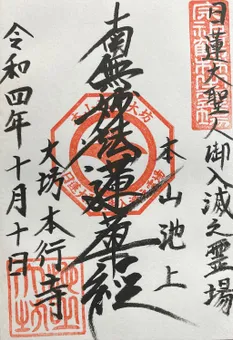 日蓮大聖人御入滅之霊場
南無妙法蓮華経
本山池上
大坊本行寺
令和四年十月十日